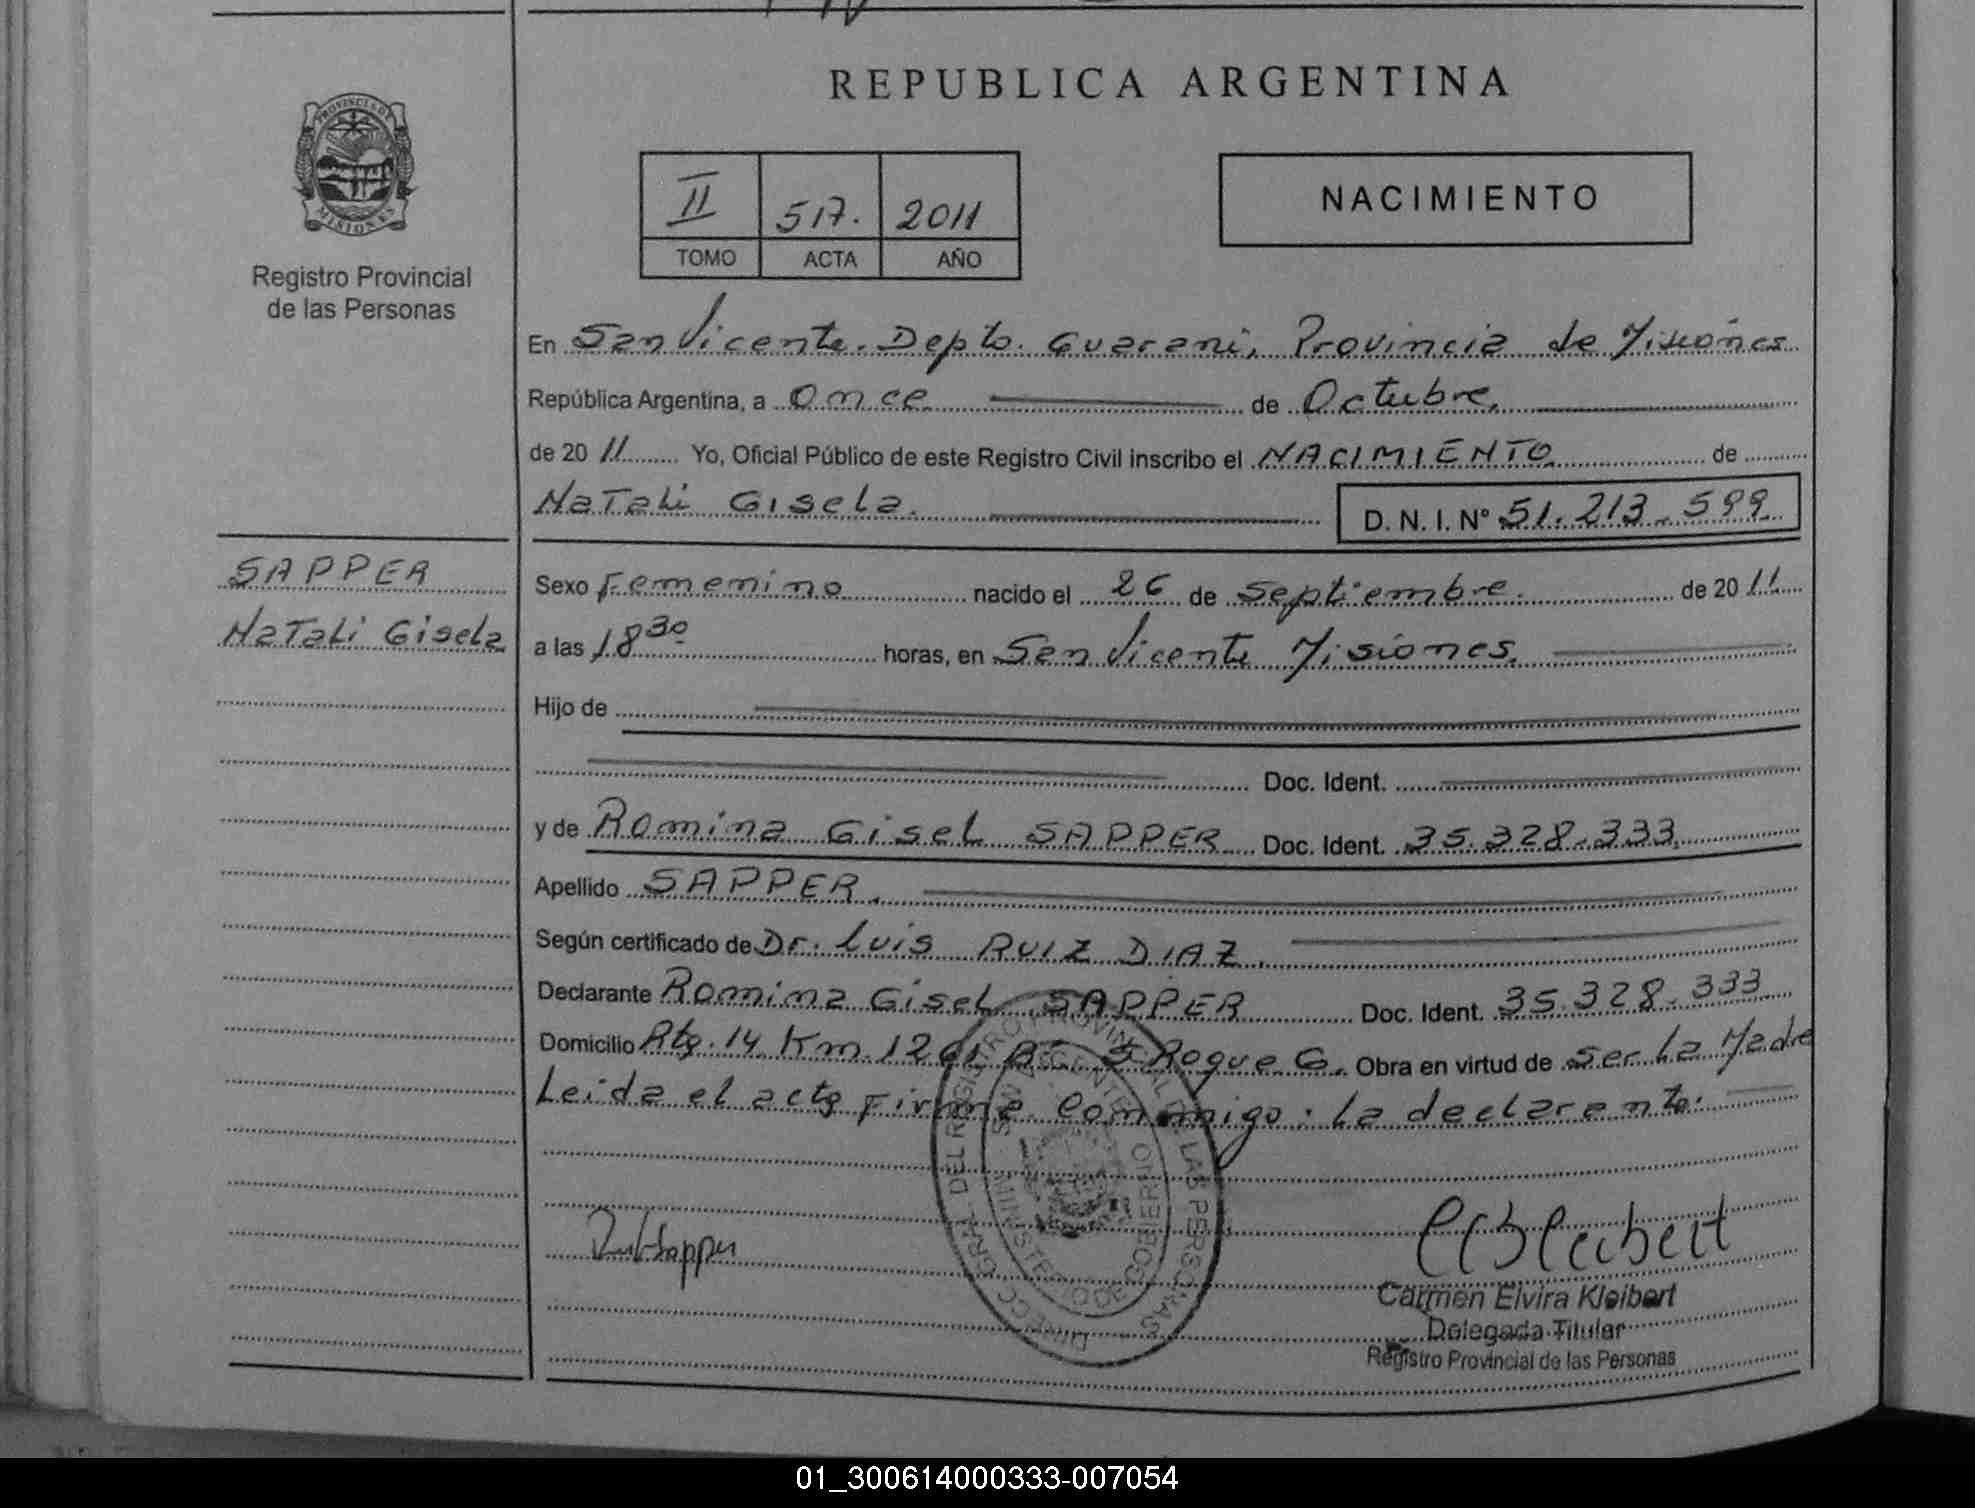 REPUBLICA ARGENTINA
PROVINCIA DE
MISIONES
Registro Provincial
de las Personas
II 517. 2011
TOMO ACTA AÑO
NACIMIENTO
En San Vicente. Depto. Guarani, Provincia de Misiones
República Argentina, a once de Octubre.
de 20 11 Yo, Oficial Público de este Registro Civil inscribo el NACIMIENTO de
Natali Gisela. D. N. I. Nº 51.213.599
SAPPER
Natali Gisela
Sexo Femenino nacido el 26 de Septiembre. de 20 11
a las 18 30 horas, en San Vicente Misiones.
Hijo de
Doc. Ident.
y de Romina Gisel SAPPER Doc. Ident. 35.328.333
Apellido SAPPER.
Según certificado de Dr. Luis RUIZ DIAZ.
Declarante Romina Gisel SAPPER Doc. Ident. 35.328.333
Domicilio Rta. 14 Km. 1261 Bº S Roque G. Obra en virtud de ser La Madre
Leida el acta Firma Conmigo: La declarante.
DIRECC. GRAL. DEL REGISTRO PROVINCIAL DE LAS PERSONAS
SAN VICENTE
MINISTERIO DE GOBIERNO
Carmen Elvira Kleibert
Delegada Titular
Registro Provincial de las Personas
01_300614000333-007054